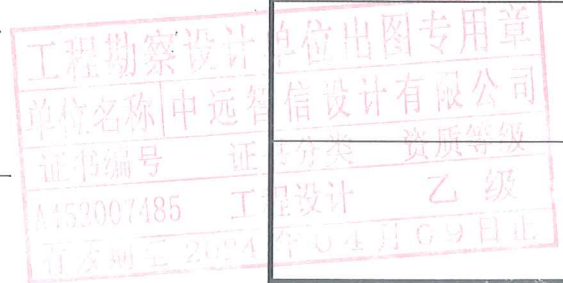 工程勘察设计单位出图专用章
单位名称 中远智信设计有限公司
证书编号 证书分类 资质等级
A452007485 工程设计 乙级
有效期至 2024年04月09日止